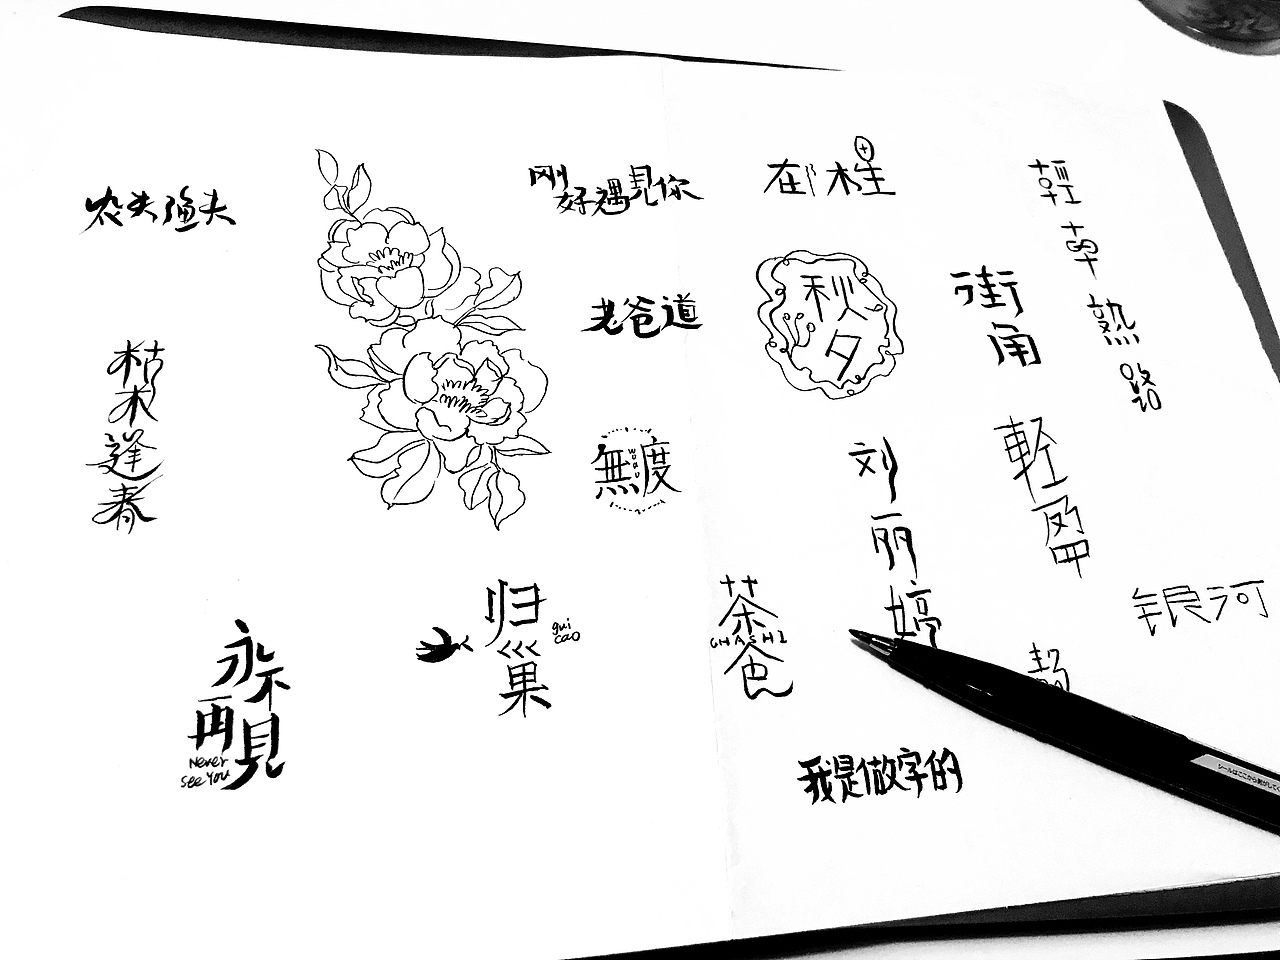 农夫渔夫
枯木逢春
永不再見
Never
see you
归巢
gui
cao
刚好遇見你
老爸道
無度
WUDU
茶色
CHASHI
秋夕
街角
刘丽婷
我是做字的
輕車熟路
輕
银河
シールはここから剥がしてく